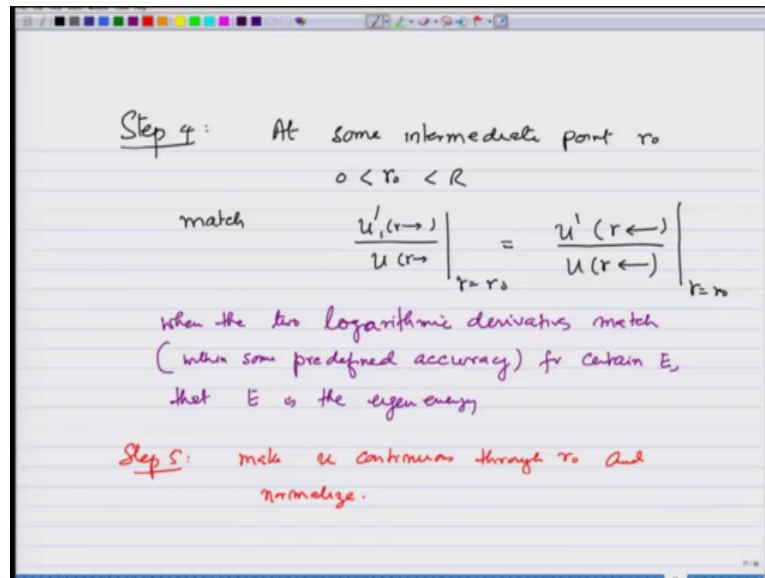 Step 4: At some intermediate point r₀
0 < r₀ < R
match u'(r→) / u(r→ |r=r₀ = u'(r←) / u(r←) |r=r₀
when the two logarithmic derivatives match
(within some predefined accuracy) for certain E,
that E is the eigen energy
Step 5: make u continuous through r₀ and
normalize.